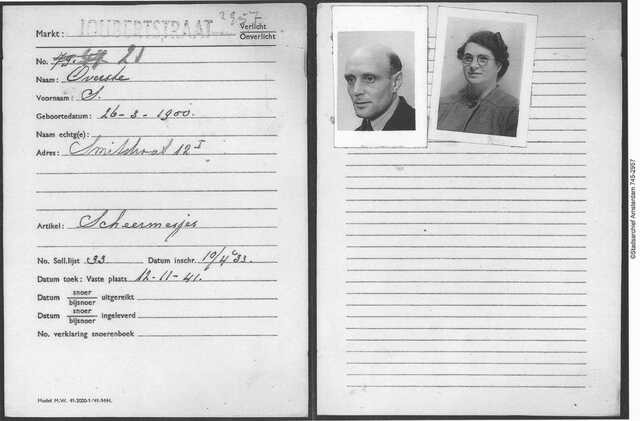 Markt: JOUBERTSTRAAT 2957 Verlicht
Onverlicht
No. 21
Naam: Overste
Voornaam: S.
Geboortedatum: 26-3-1900.
Naam echtg(e):
Adres: Smitstraat 12 I
Artikel: Scheermesjes
No. Soll.lijst 33 Datum inschr. 10/4 '33.
Datum toek: Vaste plaats 12-11-41.
Datum snoer uitgereikt
bijsnoer
Datum snoer ingeleverd
bijsnoer
No. verklaring snoerenboek
Model M.W. 41-2000-1-'41-MH.
©Stadsarchief Amsterdam 745-2957